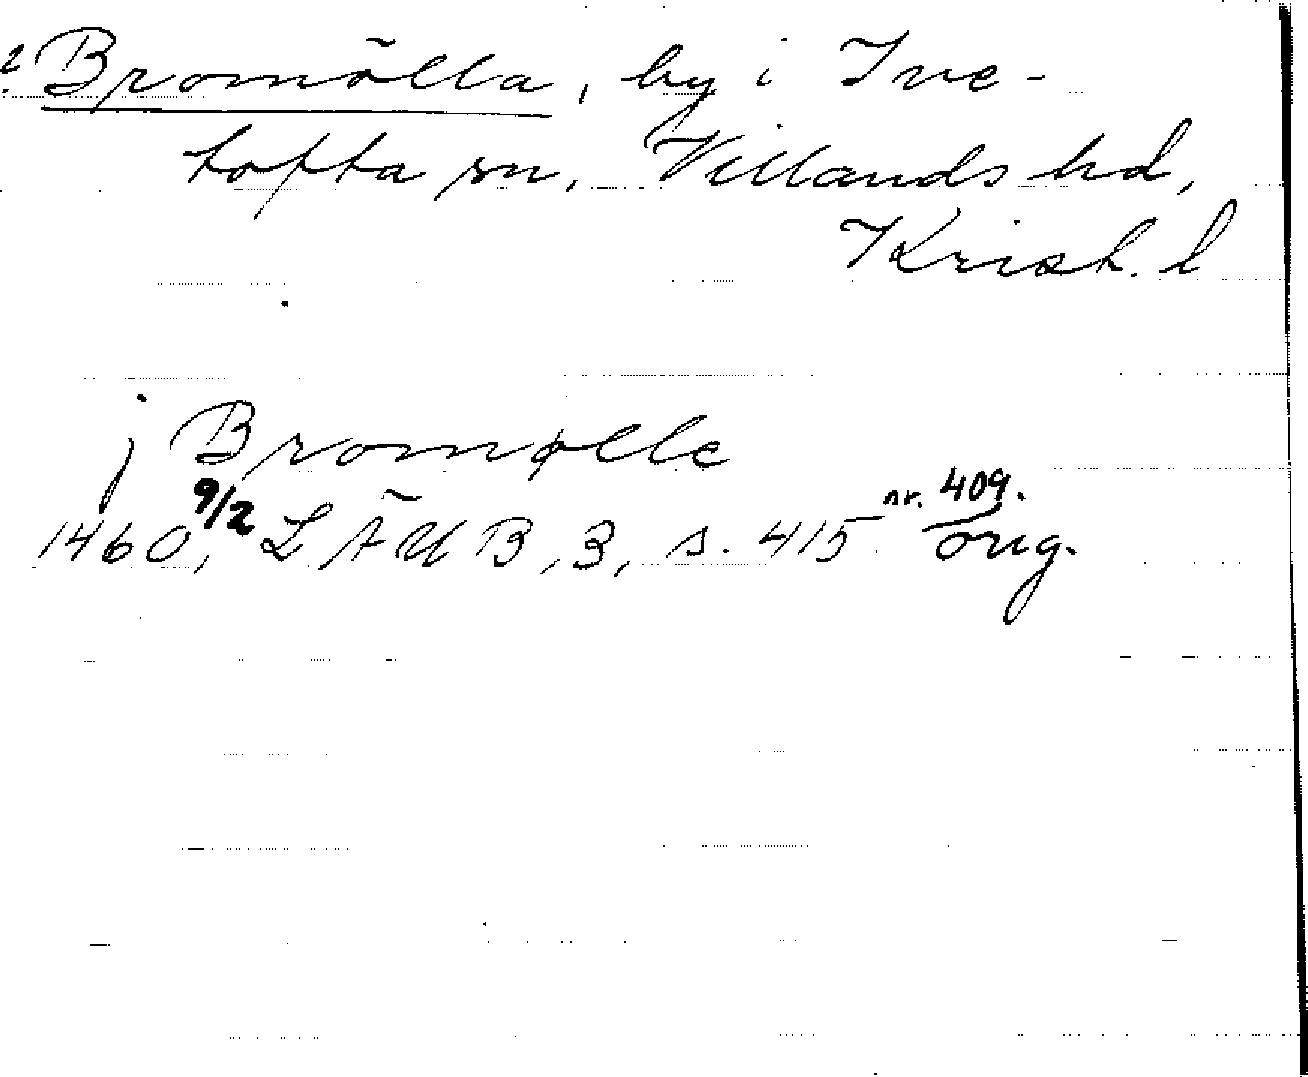 ? Bromölla, by i Ive-
tofta sn, Villands hd,
Krist. l
j Bromølle
1460 9/2, LÄUB, 3, s. 415 nr. 409.
orig.